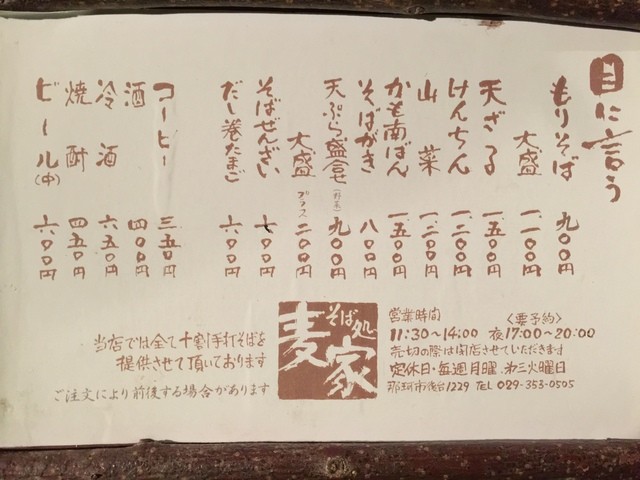 目に言う
もりそば 九〇〇円
大盛 一、一〇〇円
天ざる 一、五〇〇円
けんちん 一、二〇〇円
山菜 一、二〇〇円
かも南ばん 一、五〇〇円
そばがき 八〇〇円
天ぷら盛合せ 九〇〇円
大盛 プラス 二〇〇円
そばぜんざい 七〇〇円
だし巻たまご 六〇〇円
コーヒー 三五〇円
酒 四〇〇円
冷酒 六五〇円
焼酎 四五〇円
ビール(中) 六〇〇円
営業時間 〈要予約〉
11:30~14:00 夜17:00~20:00
売切の際は閉店させていただきます
定休日・毎週月曜 第三火曜日
1229 TEL 029-353-0505
そば処
麦家
当店では全て十割手打そばを
提供させて頂いております
ご注文により前後する場合があります